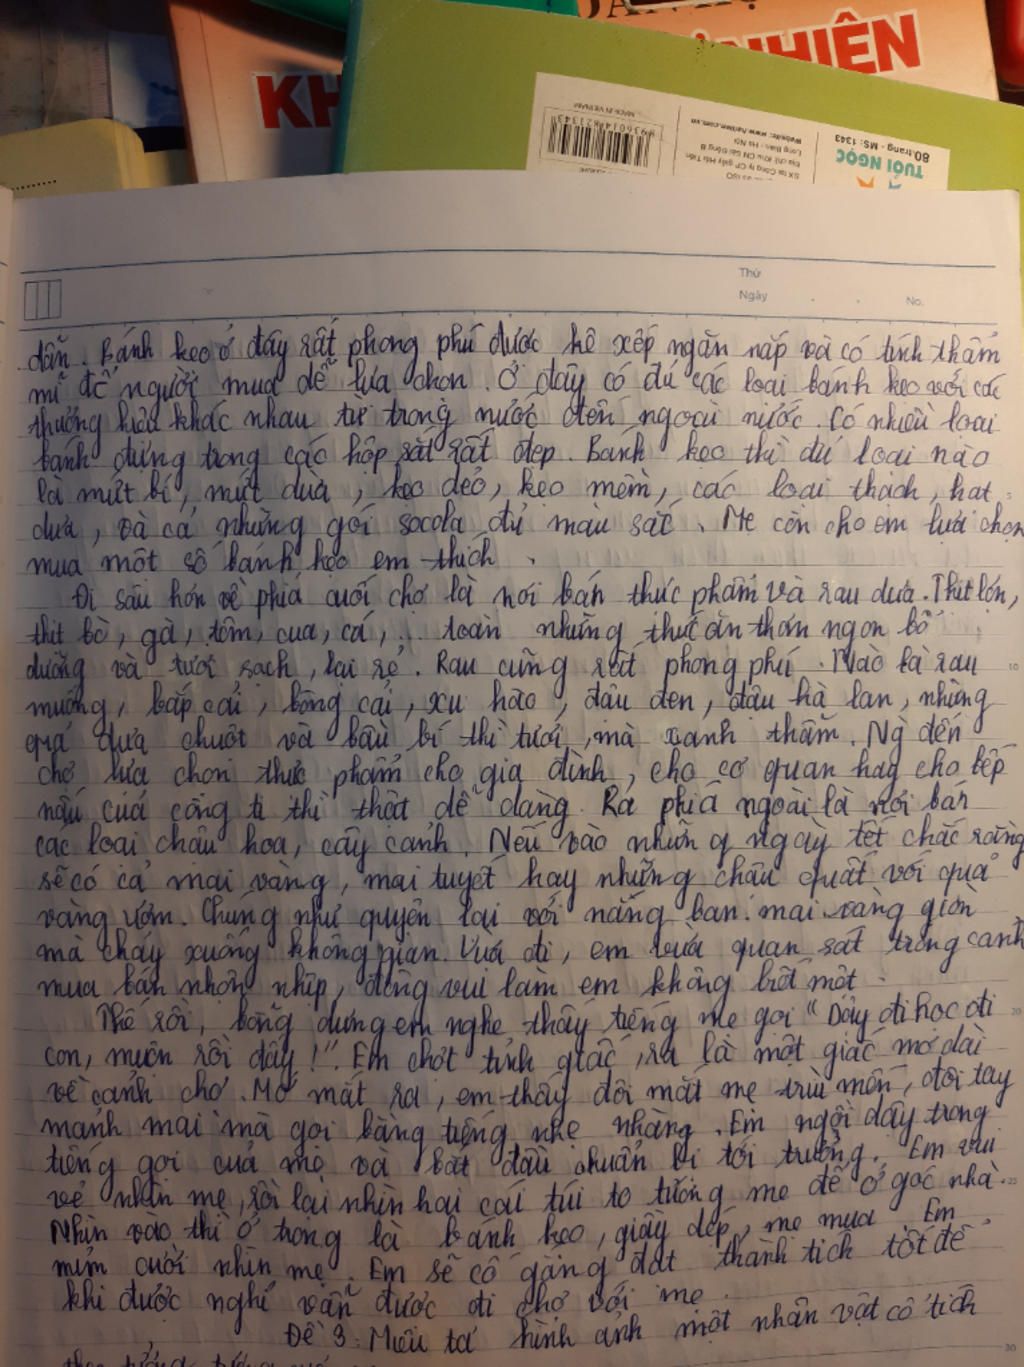 KH
NHIÊN
MADE IN VIETNAM
8936014821343
SX tại Công ty CP giấy Hải Tiến
Địa chỉ: Khu CN Sài Đồng B
Long Biên - Hà Nội
Website: www.haitien.com.vn
TUỔI NGỌC
80 trang - MS: 1343
Thứ
Ngày . . No.
dẫn. Bánh kẹo ở đây rất phong phú được kê xếp ngăn nắp và có tính thẩm
mĩ để người mua dễ lựa chọn. Ở đây có đủ các loại bánh kẹo với các
thương hiệu khác nhau từ trong nước đến ngoài nước. Có nhiều loại
bánh đựng trong các hộp sắt rất đẹp. Bánh kẹo thì đủ loại nào
là mứt bí, mứt dừa, kẹo dẻo, kẹo mềm, các loại thạch, hạt
dưa, và cả những gói socola đủ màu sắc. Mẹ còn cho em lựa chọn
mua một số bánh kẹo em thích.
Đi sâu hơn về phía cuối chợ là nơi bán thực phẩm và rau dưa. Thịt lợn,
thịt bò, gà, tôm, cua, cá, ... toàn những thức ăn thơm ngon bổ
dưỡng và tươi sạch, lại rẻ. Rau cũng rất phong phú. Nào là rau
muống, bắp cải, bông cải, xu hào, đậu đen, đậu hà lan, những
quả dưa chuột và bầu bí thì tươi, mà xanh thẫm. Ng đến
chợ lựa chọn thực phẩm cho gia đình, cho cơ quan hay cho bếp
nấu của công ti thì thật dễ dàng. Ra phía ngoài là nơi bán
các loại chậu hoa, cây cảnh. Nếu vào những ngày tết chắc rằng
sẽ có cả mai vàng, mai tuyết hay những chậu quất với quả
vàng ươm. Chúng như quyện lại với nắng ban mai vàng giòn
mà chảy xuống không gian. Vừa đi, em vừa quan sát trong cảnh
mua bán nhộn nhịp, đông vui làm em không biết mệt.
Thế rồi, bỗng dưng em nghe thấy tiếng mẹ gọi "Dậy đi học đi
con, muộn rồi đấy!". Em chợt tỉnh giấc, ra là một giấc mơ dài
về cảnh chợ. Mở mắt ra, em thấy đôi mắt mẹ trìu mến, đôi tay
mảnh mai mà gọi bằng tiếng nhẹ nhàng. Em ngồi dậy trong
tiếng gọi của mẹ và bắt đầu chuẩn bị tới trường. Em vui
vẻ nhìn mẹ, rồi lại nhìn hai cái túi to tướng mẹ để ở góc nhà.
Nhìn vào thì ở trong là bánh kẹo, giầy dép, mẹ mua. Em
mỉm cười nhìn mẹ. Em sẽ cố gắng đạt thành tích tốt để
khi được nghỉ vẫn được đi chợ với mẹ.
Đề 3: Miêu tả hình ảnh một nhân vật cổ tích